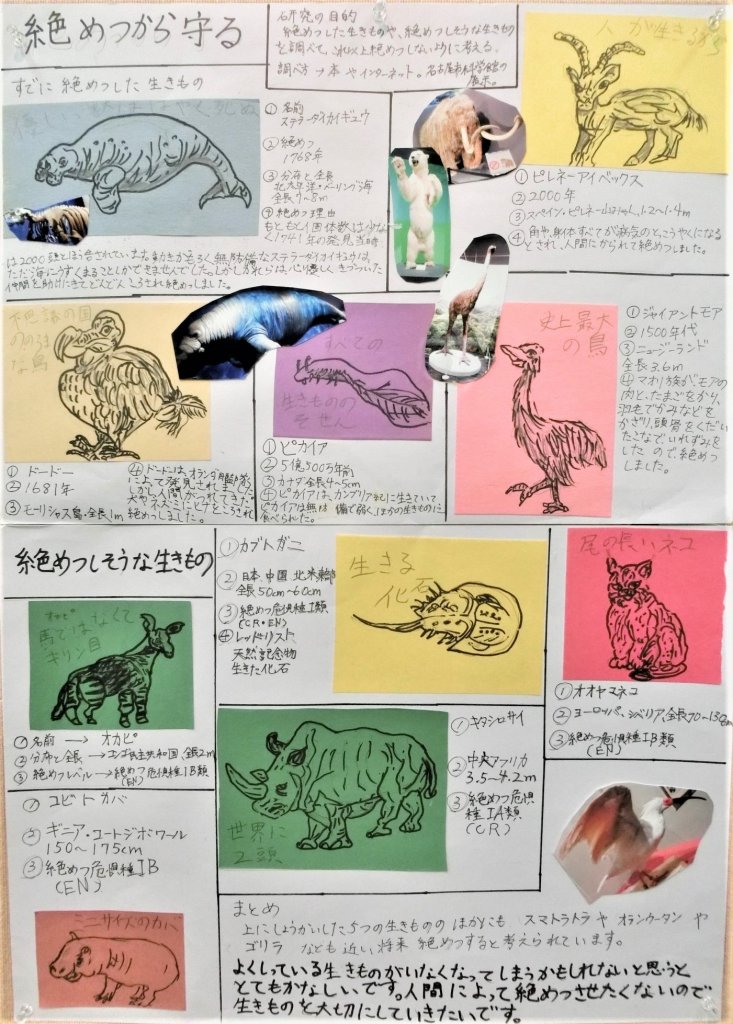 絶めつから守る
研究の目的
絶めつした生きものや、絶めつしそうな生きもの
を調べて、これ以上絶めつしないように考える。
調べ方→本やインターネット。名古屋市科学館の
展示。
すでに絶めつした生きもの
① 名前
ステラーダイカイギュウ
② 絶めつ
1768年
③ 分布と全長
北太平洋・ベーリング海
全長7〜8m
④ 絶めつ理由
もともと個体数は少なく
1741年の発見当時
は2000頭と
無防備なステラーダイカイギュウは、
ただ海にうずくまることしかできませんでした。しかしかれらは心が優しく、きづついた
仲間を助けにきてどんどんころされ絶めつしました。
人が生きる
① ピレネーアイベックス
② 2000年
③ スペイン・ピレネー山みゃく、1.2〜1.4m
④ 角や、身体すべてが病気のとっこうやくになる
とされ、人間にかられて絶めつしました。
不思議の国
な鳥
① ドードー
② 1681年
③ モーリシャス島・全長1m
④ ドードーは、オランダ
によって発見されました
しかし人間がつれてきた
犬やネズミにヒナをころされ
絶めつしました。
すべての
生きものの
そせん
① ピカイア
② 5億500万年前
③ カナダ、全長4〜5cm
④ ピカイアは、カンブリア紀に生きていて
ピカイアは無防備で弱く、ほかの生きものに
食べられた。
史上最大
の鳥
① ジャイアントモア
② 1500年代
③ ニュージーランド
全長3.6m
④ マオリ族がモアの
肉と、たまごをかり、
羽毛でかみなどを
かざり、頭骨をくだい
たこなでいれずみを
したので、絶めつ
しました。
絶めつしそうな生きもの
オカピ
馬ではなくて
キリン目
① 名前 → オカピ
② 分布と全長 → コンゴ民主共和国、全長2m
③ 絶めつレベル → 絶めつ危惧種ⅠB類
(EN)
① カブトガニ
② 日本、中国、北米東部
全長50cm〜60cm
③ 絶めつ危惧種Ⅰ類
(CR・EN)
④ レッドリスト
天然記念物
生きた化石
生きる
化石
尾の長いネコ
① オオヤマネコ
② ヨーロッパ、シベリア、全長70〜130cm
③ 絶めつ危惧種ⅠB類
(EN)
① コビトカバ
② ギニア・コートジボワール
150〜175cm
③ 絶めつ危惧種ⅠB
(EN)
ミニサイズのカバ
世界に
2頭
① キタシロサイ
② 中央アフリカ
3.5〜4.2m
③ 絶めつ危惧
種ⅠA類
(CR)
まとめ
上にしょうかいした5つの生きもののほかにも スマトラトラや オランウータン や
ゴリラ なども近い将来 絶めつすると考えられています。
よくしっている生きものがいなくなってしまうかもしれないと思うと
とてもかなしいです。人間によって絶めつさせたくないので
生きものを大切にしていきたいです。